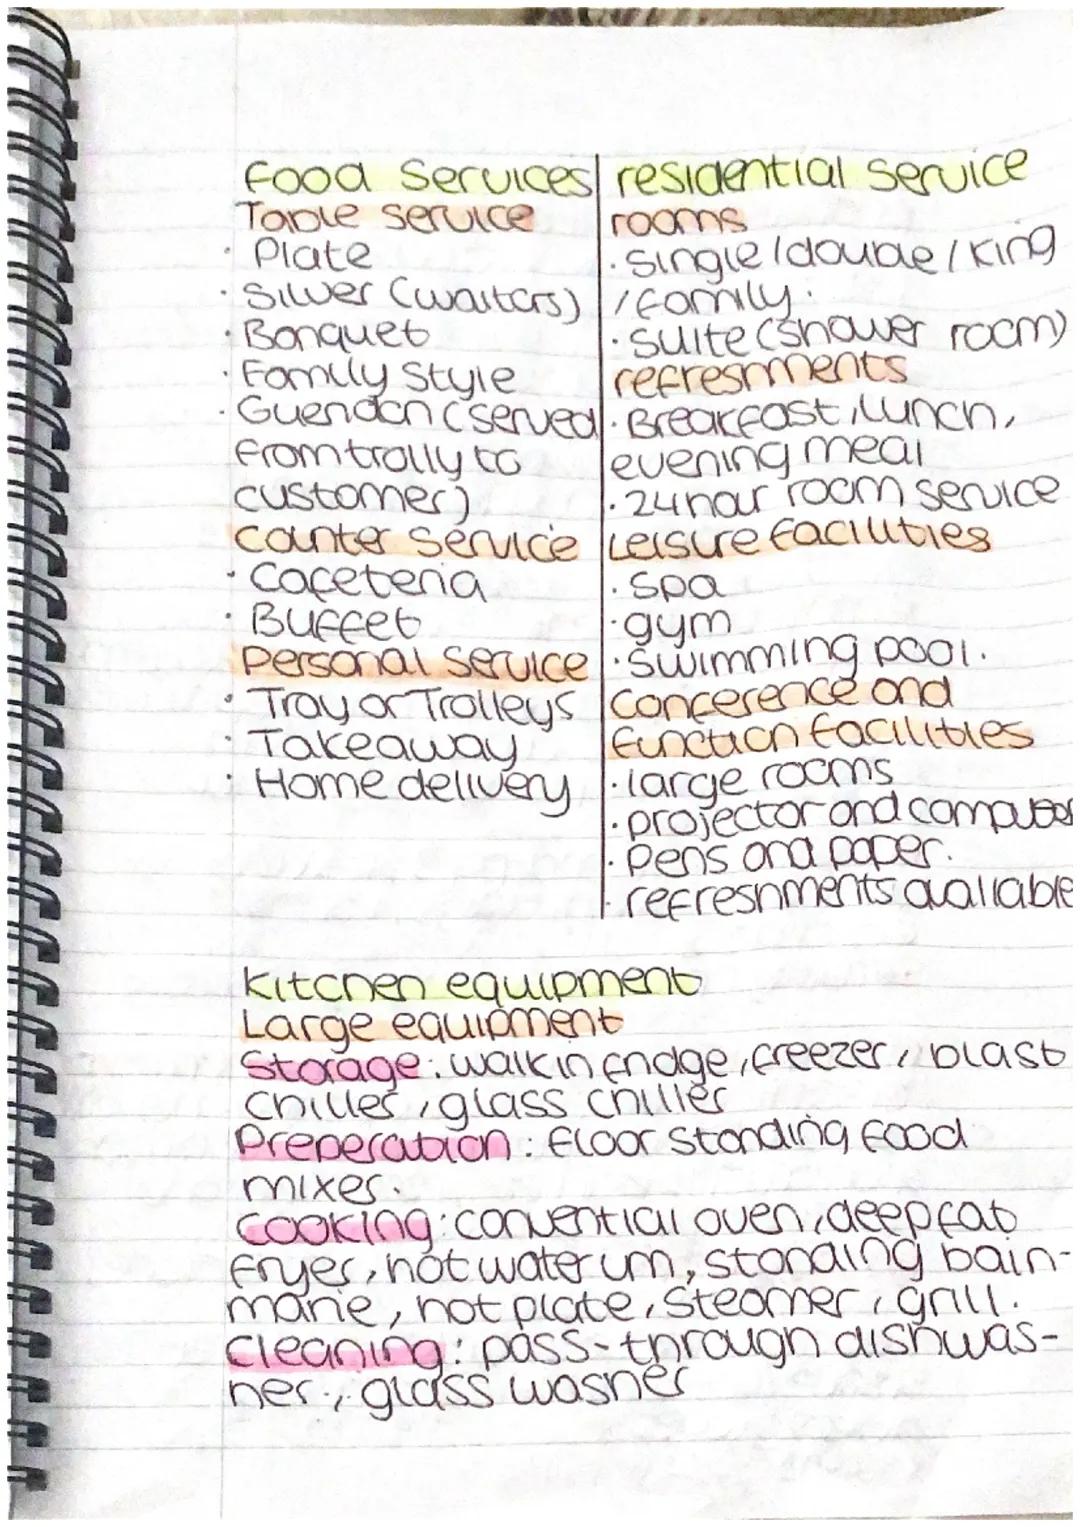 Food Services
Table service
· Plate
· Silver (waiters)
· Banquet
· Family Style
· Gueridon (served
from trolly to
customer)
Counter Service
· Cafeteria
· Buffet
Personal Service
· Tray or Trolleys
· Takeaway
· Home delivery
residential Service
rooms
· single/double/King
/family.
· suite (shower room)
refreshments
· Breakfast, lunch,
evening meal
· 24 hour room service
Leisure facilities
· spa
· gym
· swimming pool.
Conference and
function facilities
· large rooms
· projector and computer
· pens and paper.
· refreshments available
Kitchen equipment
Large equipment
Storage: walk in fridge, freezer, blast
chiller, glass chiller
Preperation: floor standing food
mixer.
Cooking: convential oven, deep fat
fryer, hot water urn, standing bain-
marie, hot plate, steamer, grill.
Cleaning: pass-through dishwas-
her, glass washer